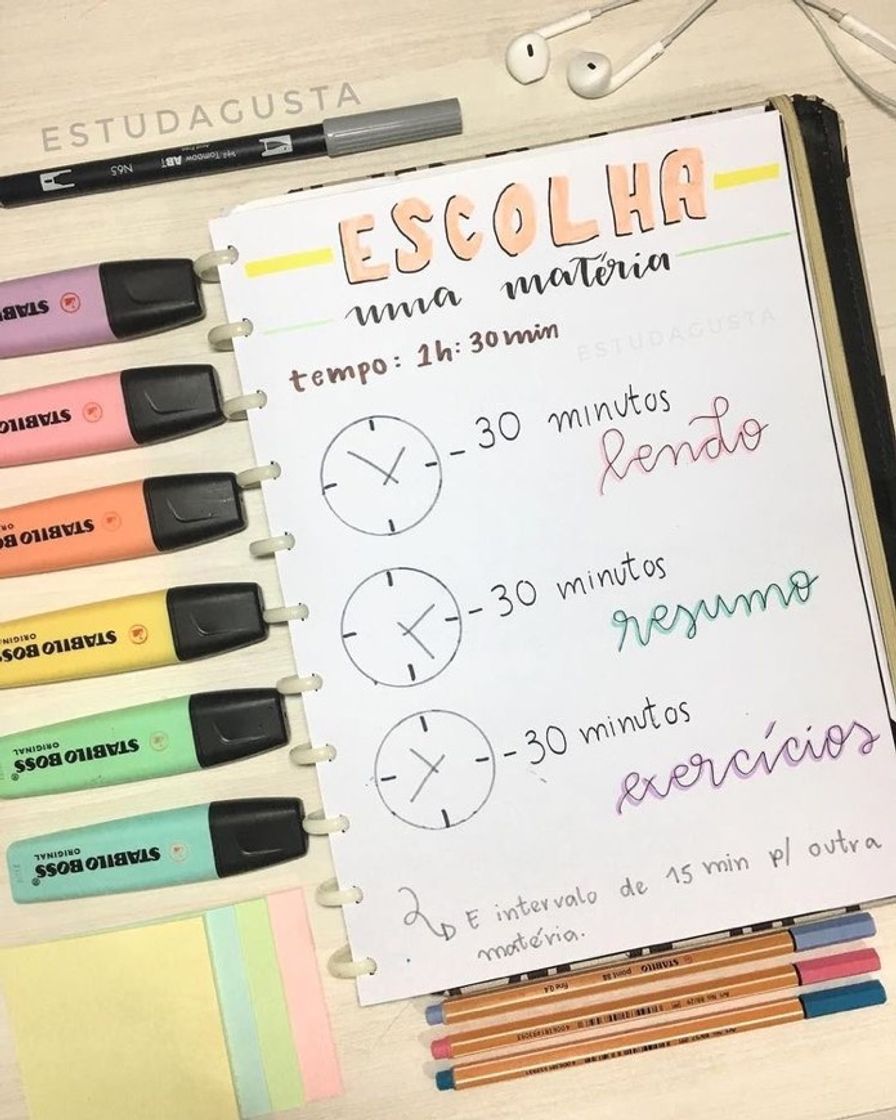 ESTUDAGUSTA
N65
Tombow ABT
ESCOLHA
uma matéria
ESTUDAGUSTA
tempo: 1h: 30min
- 30 minutos
lendo
- 30 minutos
resumo
- 30 minutos
exercícios
E intervalo de 15 min p/ outra
matéria.
STABILO
STABILO
STABILO BO
STABILO BOSS
ORIGINAL
STABILO BOSS
ORIGINAL
STABILO BOSS
ORIGINAL
STABILO point 88
fine 0,4